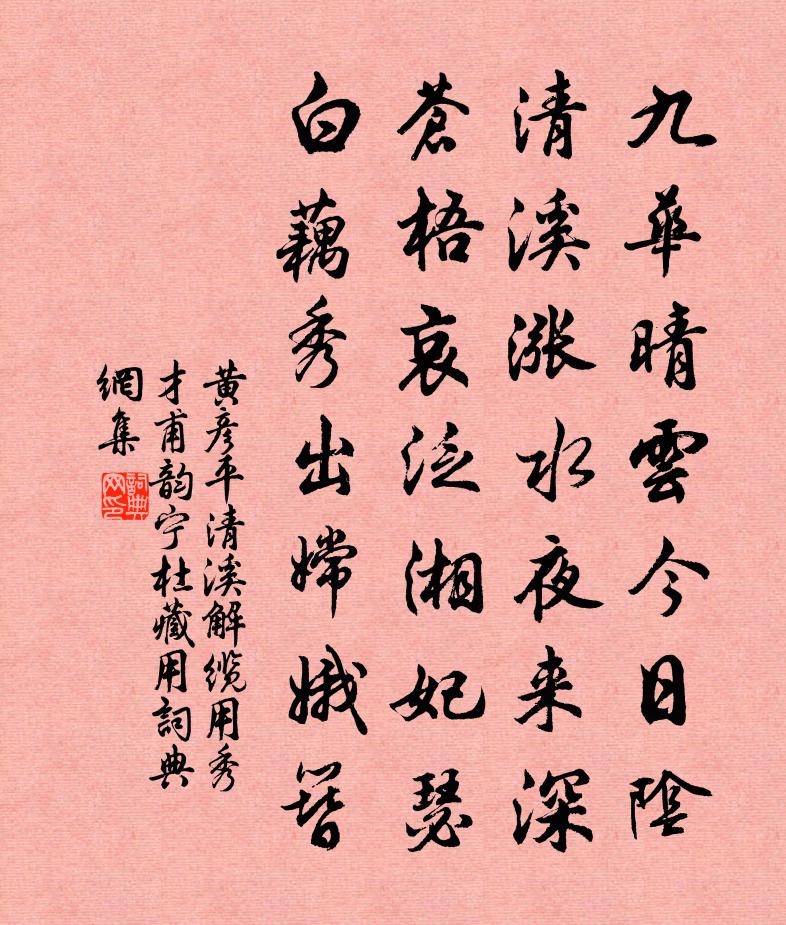 九華晴雲今日陰
清溪漲水夜来深
蒼梧哀泛湘妃瑟
白藕秀出嫦娥簪
黄彦平清溪解缆用秀
才甫韵宁杜藏用詞典
網集
詞典网印